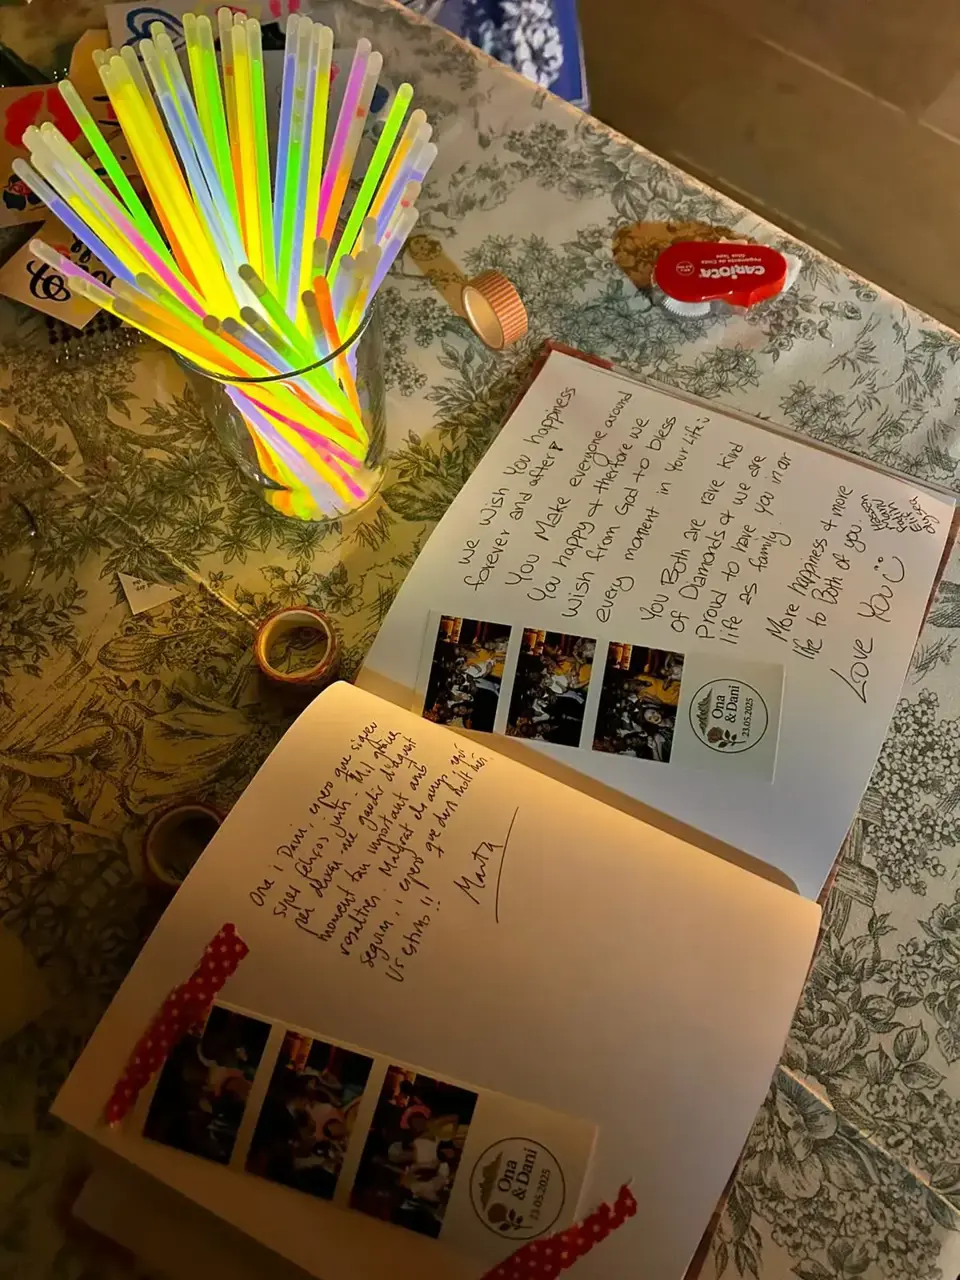 CARIOCA
We wish You happiness
forever and after
You Make everyone around
You happy & therfore we
Wish from God to bless
every moment in Your life
You Both are rare kind
of Diamonds & we are
Proud to have you in our
life as family.
More happiness & more
life to Both of you.
Love You
Ona
& Dani
23.05.2025
Ona i Dani, espero que sigueu
super feliços junts. Mil gràcies
per deixar-me gaudir d'aquest
moment tan important amb
vosaltres. Malgrat els anys aquí
seguim, i espero que duri molt més.
Us estimo!!
Marta
Ona
& Dani
23.05.2025